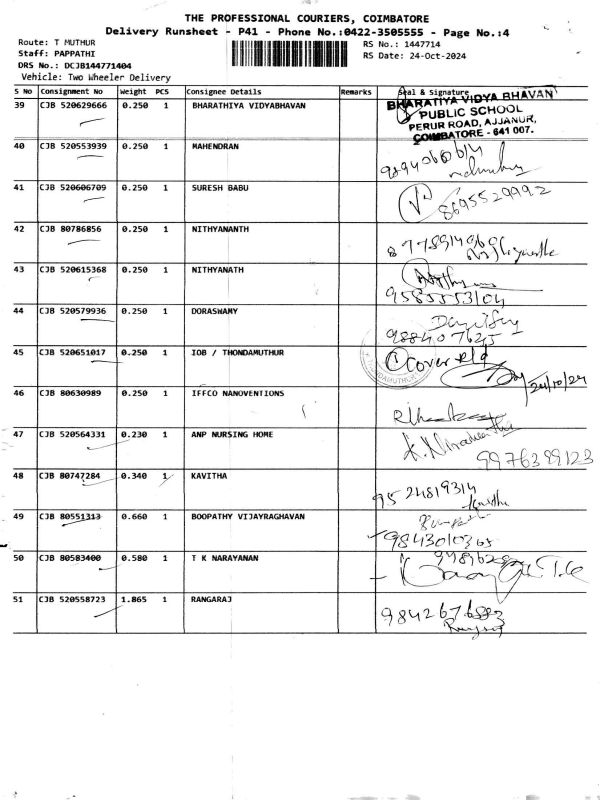 THE PROFESSIONAL COURIERS, COIMBATORE
Delivery Runsheet - P41 - Phone No.:0422-3505555 - Page No.:4
Route: T MUTHUR
RS No.: 1447714
Staff: PAPPATHI
RS Date: 24-Oct-2024
DRS No.: DCJB144771404
Vehicle: Two Wheeler Delivery
S No Consignment No Weight PCS Consignee Details Remarks Seal & signature
39 CJB 520629666 0.250 1 BHARATHIYA VIDYABHAVAN
BHARATIYA VIDYA BHAVAN
PUBLIC SCHOOL
PERUR ROAD, AJJANUR,
COIMBATORE - 641 007.
40 CJB 520553939 0.250 1 MAHENDRAN
9894060614
41 CJB 520606709 0.250 1 SURESH BABU
8695529992
42 CJB 80786856 0.250 1 NITHYANANTH
43 CJB 520615368 0.250 1 NITHYANATH
9585553104
44 CJB 520579936 0.250 1 DORASWAMY
988407625
45 CJB 520651017 0.250 1 IOB / THONDAMUTHUR
1 Cover Rd
24/10/24
46 CJB 80630989 0.250 1 IFFCO NANOVENTIONS
47 CJB 520564331 0.230 1 ANP NURSING HOME
9976389123
48 CJB 80747284 0.340 1 KAVITHA
9524819314
49 CJB 80551313 0.660 1 BOOPATHY VIJAYRAGHAVAN
9843010365
50 CJB 80583400 0.580 1 T K NARAYANAN
51 CJB 520558723 1.865 1 RANGARAJ